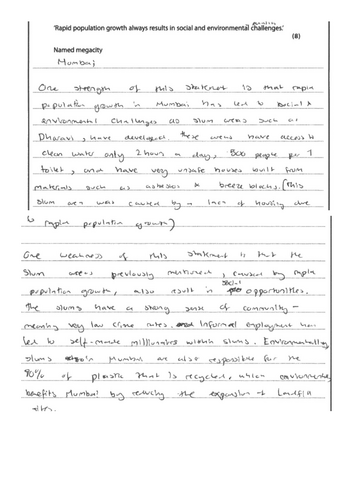 'Rapid population growth always results in social and environmental challenges.'
(8)
Named megacity
Mumbai
One strength of this statement is that rapid
population growth in Mumbai has led to social &
environmental challenges as slum areas such as
Dharavi, have developed. these areas have access to
clean water only 2 hours a day, 500 people per 1
toilet, and have very unsafe houses built from
materials such as asbestos & breeze blocks. (this
slum area was caused by a lack of housing due
to rapid population growth)
One weakness of this statement is that the
slum areas previously mentioned, caused by rapid
population growth, also result in social opportunities.
the slums have a strong sense of community -
meaning very low crime rates, and informal employment has
led to self-made millionaires within slums. Environmentally
slums in Mumbai are also responsible for the
80% of plastic that is recycled, which environmentally
benefits Mumbai by reducing the expansion of landfill
sites.